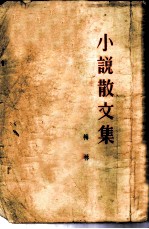 小說散文集